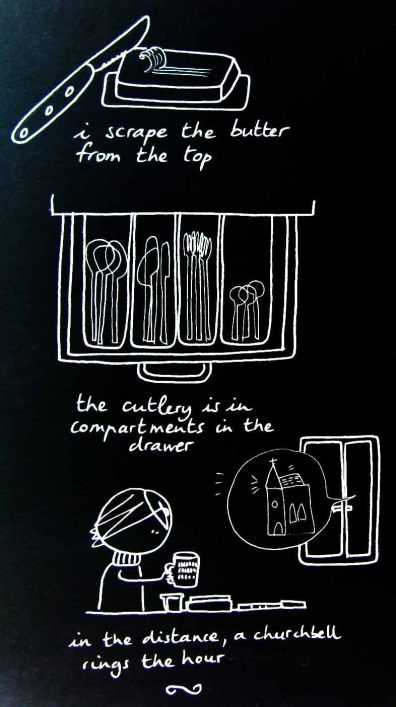 i scrape the butter
from the top
the cutlery is in
compartments in the
drawer
in the distance, a churchbell
rings the hour